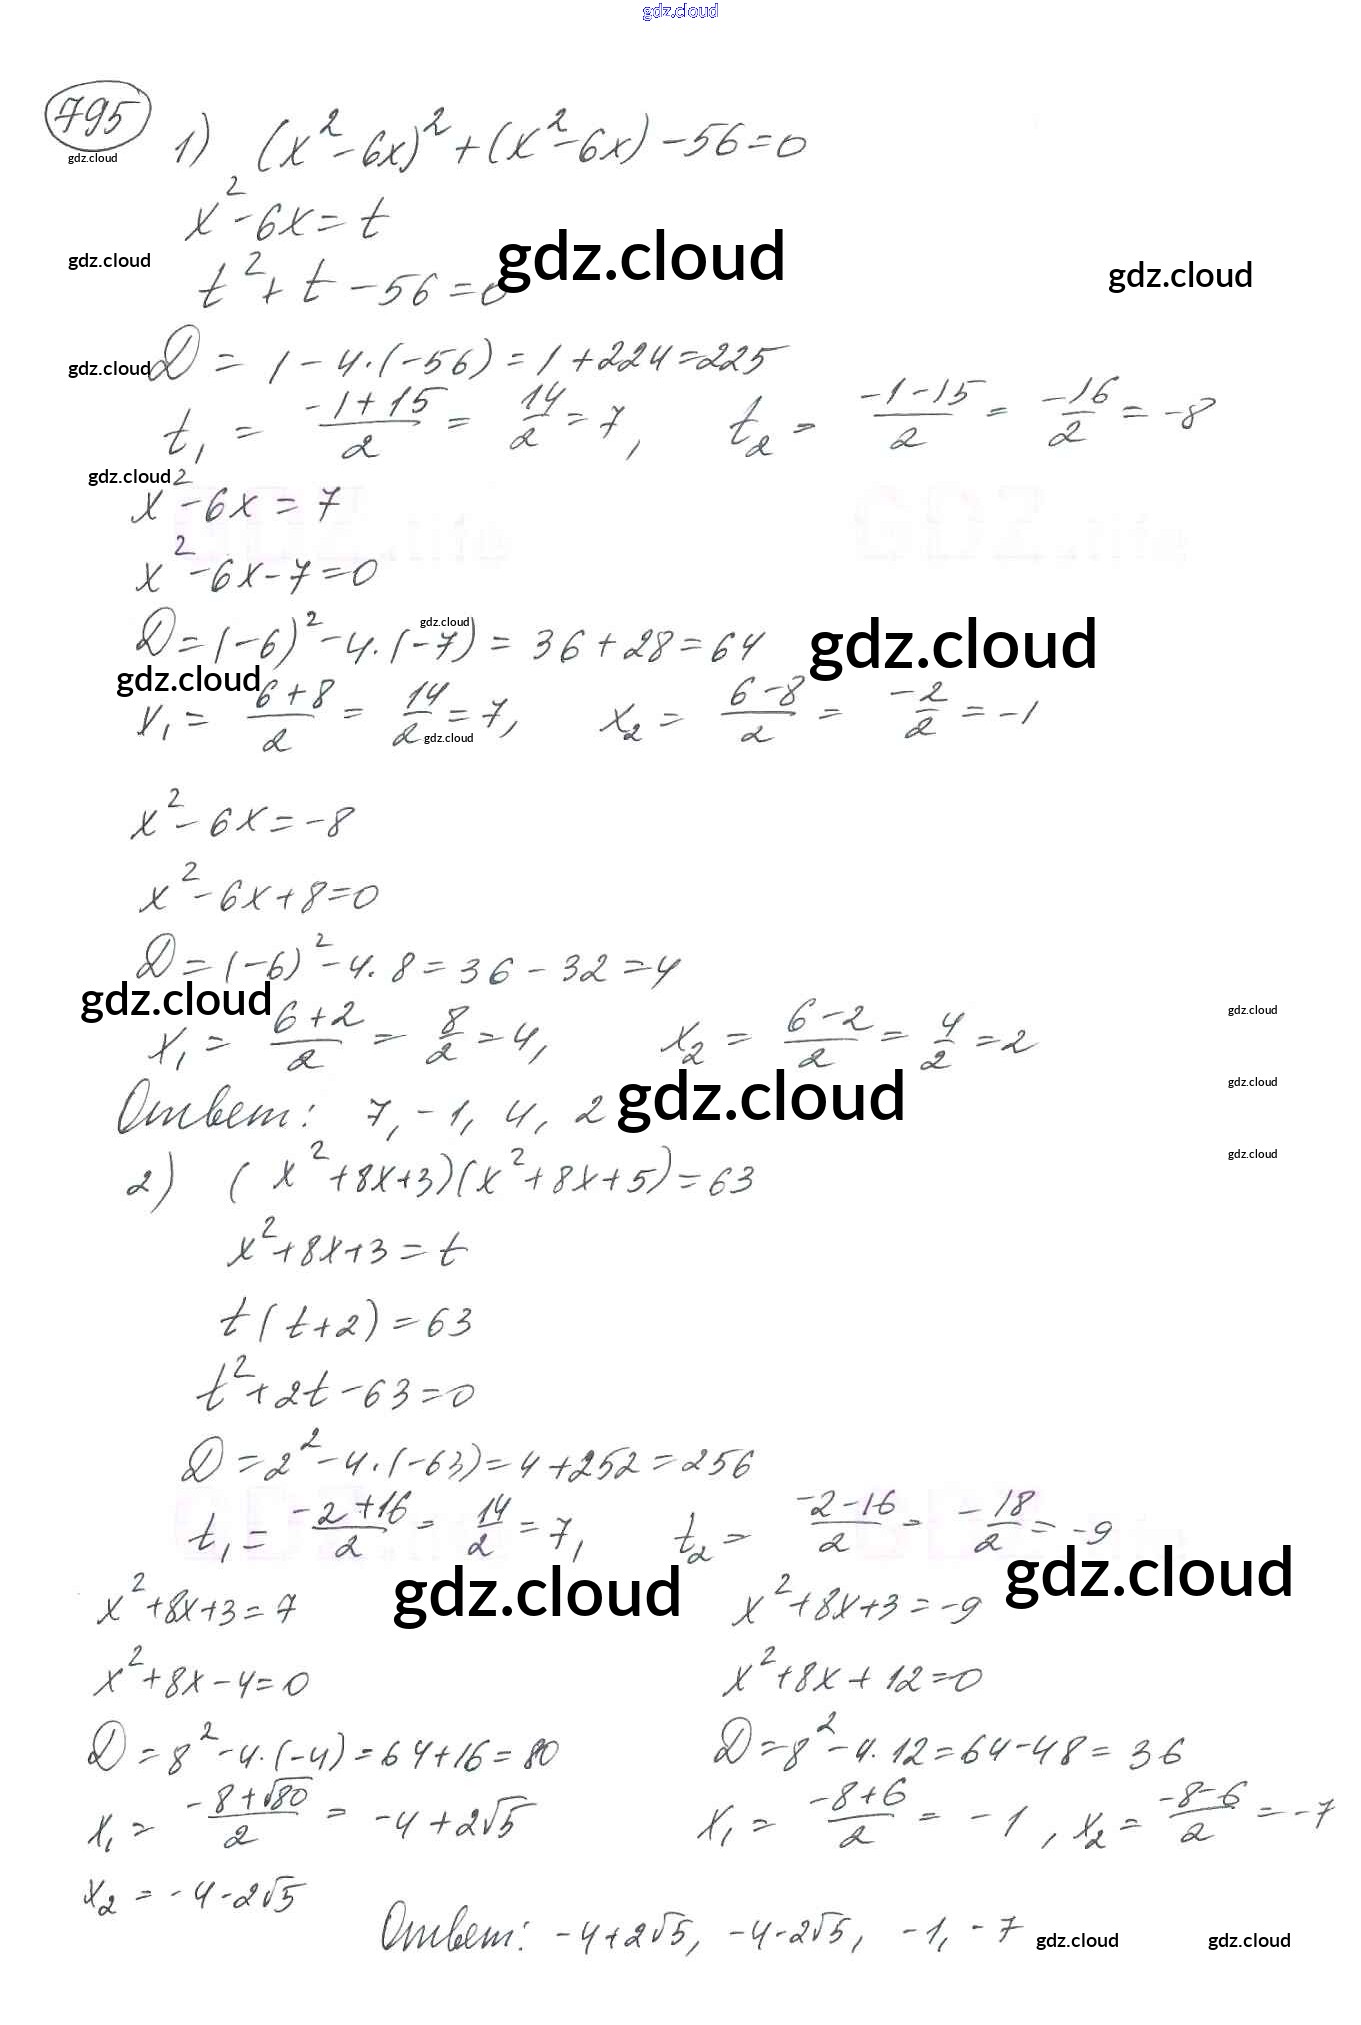 gdz.cloud
795
gdz.cloud
1) (x²-6x)²+(x²-6x)-56=0
x²-6x=t
gdz.cloud gdz.cloud gdz.cloud
t²+t-56=0
gdz.cloud
D=1-4·(-56)=1+224=225
t₁=(-1+15)/2=14/2=7, t₂=(-1-15)/2=-16/2=-8
gdz.cloud
x²-6x=7
x²-6x-7=0
gdz.cloud
D=(-6)²-4·(-7)=36+28=64 gdz.cloud
gdz.cloud
x₁=(6+8)/2=14/2=7, x₂=(6-8)/2=-2/2=-1
gdz.cloud
x²-6x=-8
x²-6x+8=0
D=(-6)²-4·8=36-32=4
gdz.cloud gdz.cloud
x₁=(6+2)/2=8/2=4, x₂=(6-2)/2=4/2=2
gdz.cloud
Ответ: 7, -1, 4, 2 gdz.cloud
gdz.cloud
2) (x²+8x+3)(x²+8x+5)=63
x²+8x+3=t
t(t+2)=63
t²+2t-63=0
D=2²-4·(-63)=4+252=256
t₁=(-2+16)/2=14/2=7, t₂=(-2-16)/2=-18/2=-9
gdz.cloud gdz.cloud
x²+8x+3=7 x²+8x+3=-9
x²+8x-4=0 x²+8x+12=0
D=8²-4·(-4)=64+16=80 D=8²-4·12=64-48=36
x₁=(-8+√80)/2=-4+2√5 x₁=(-8+6)/2=-1, x₂=(-8-6)/2=-7
x₂=-4-2√5
Ответ: -4+2√5, -4-2√5, -1, -7 gdz.cloud gdz.cloud